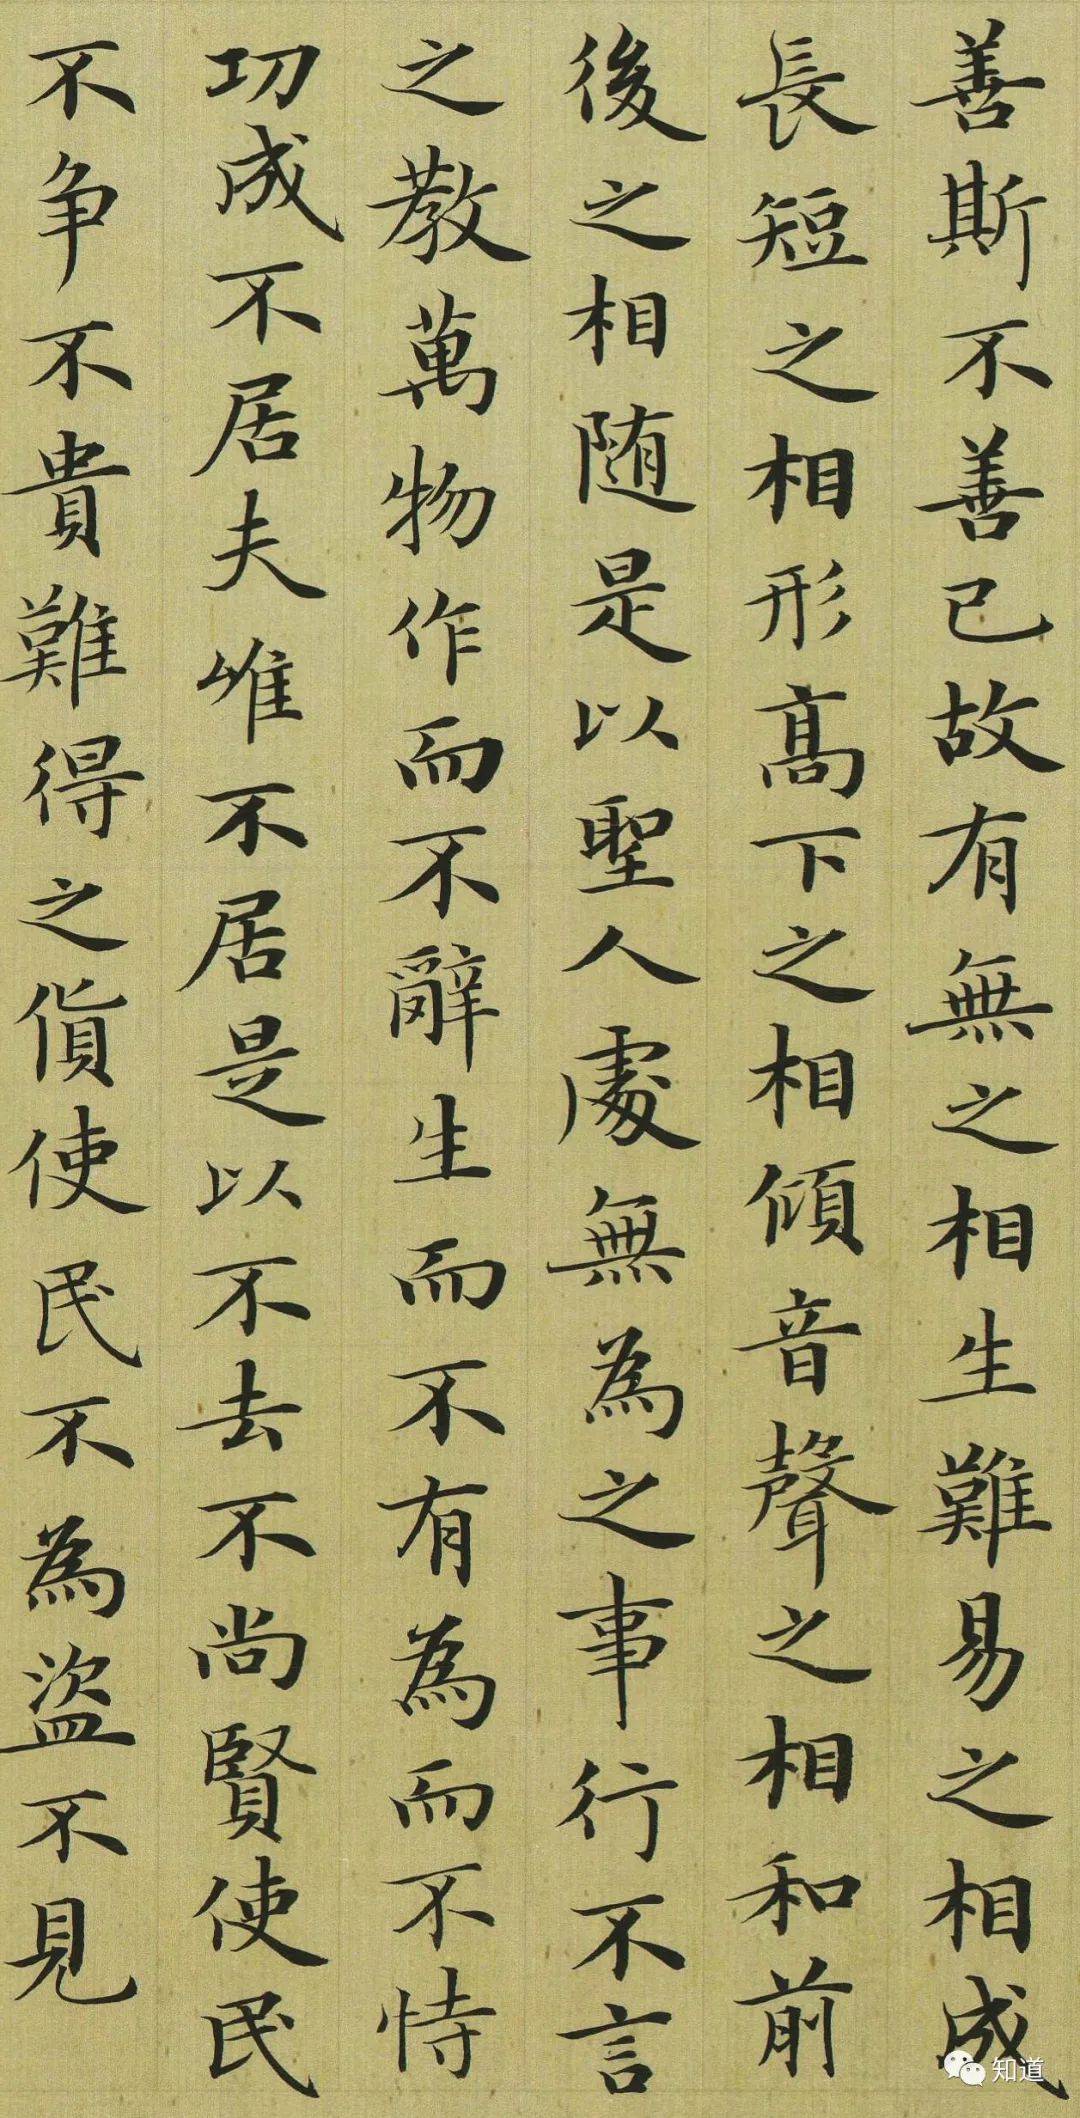 善斯不善已故有無之相生難易之相成
長短之相形高下之相傾音聲之相和前
後之相随是以聖人處無為之事行不言
之教萬物作而不辭生而不有為而不恃
功成不居夫唯不居是以不去不尚賢使民
不争不貴難得之貨使民不為盗不見
知道